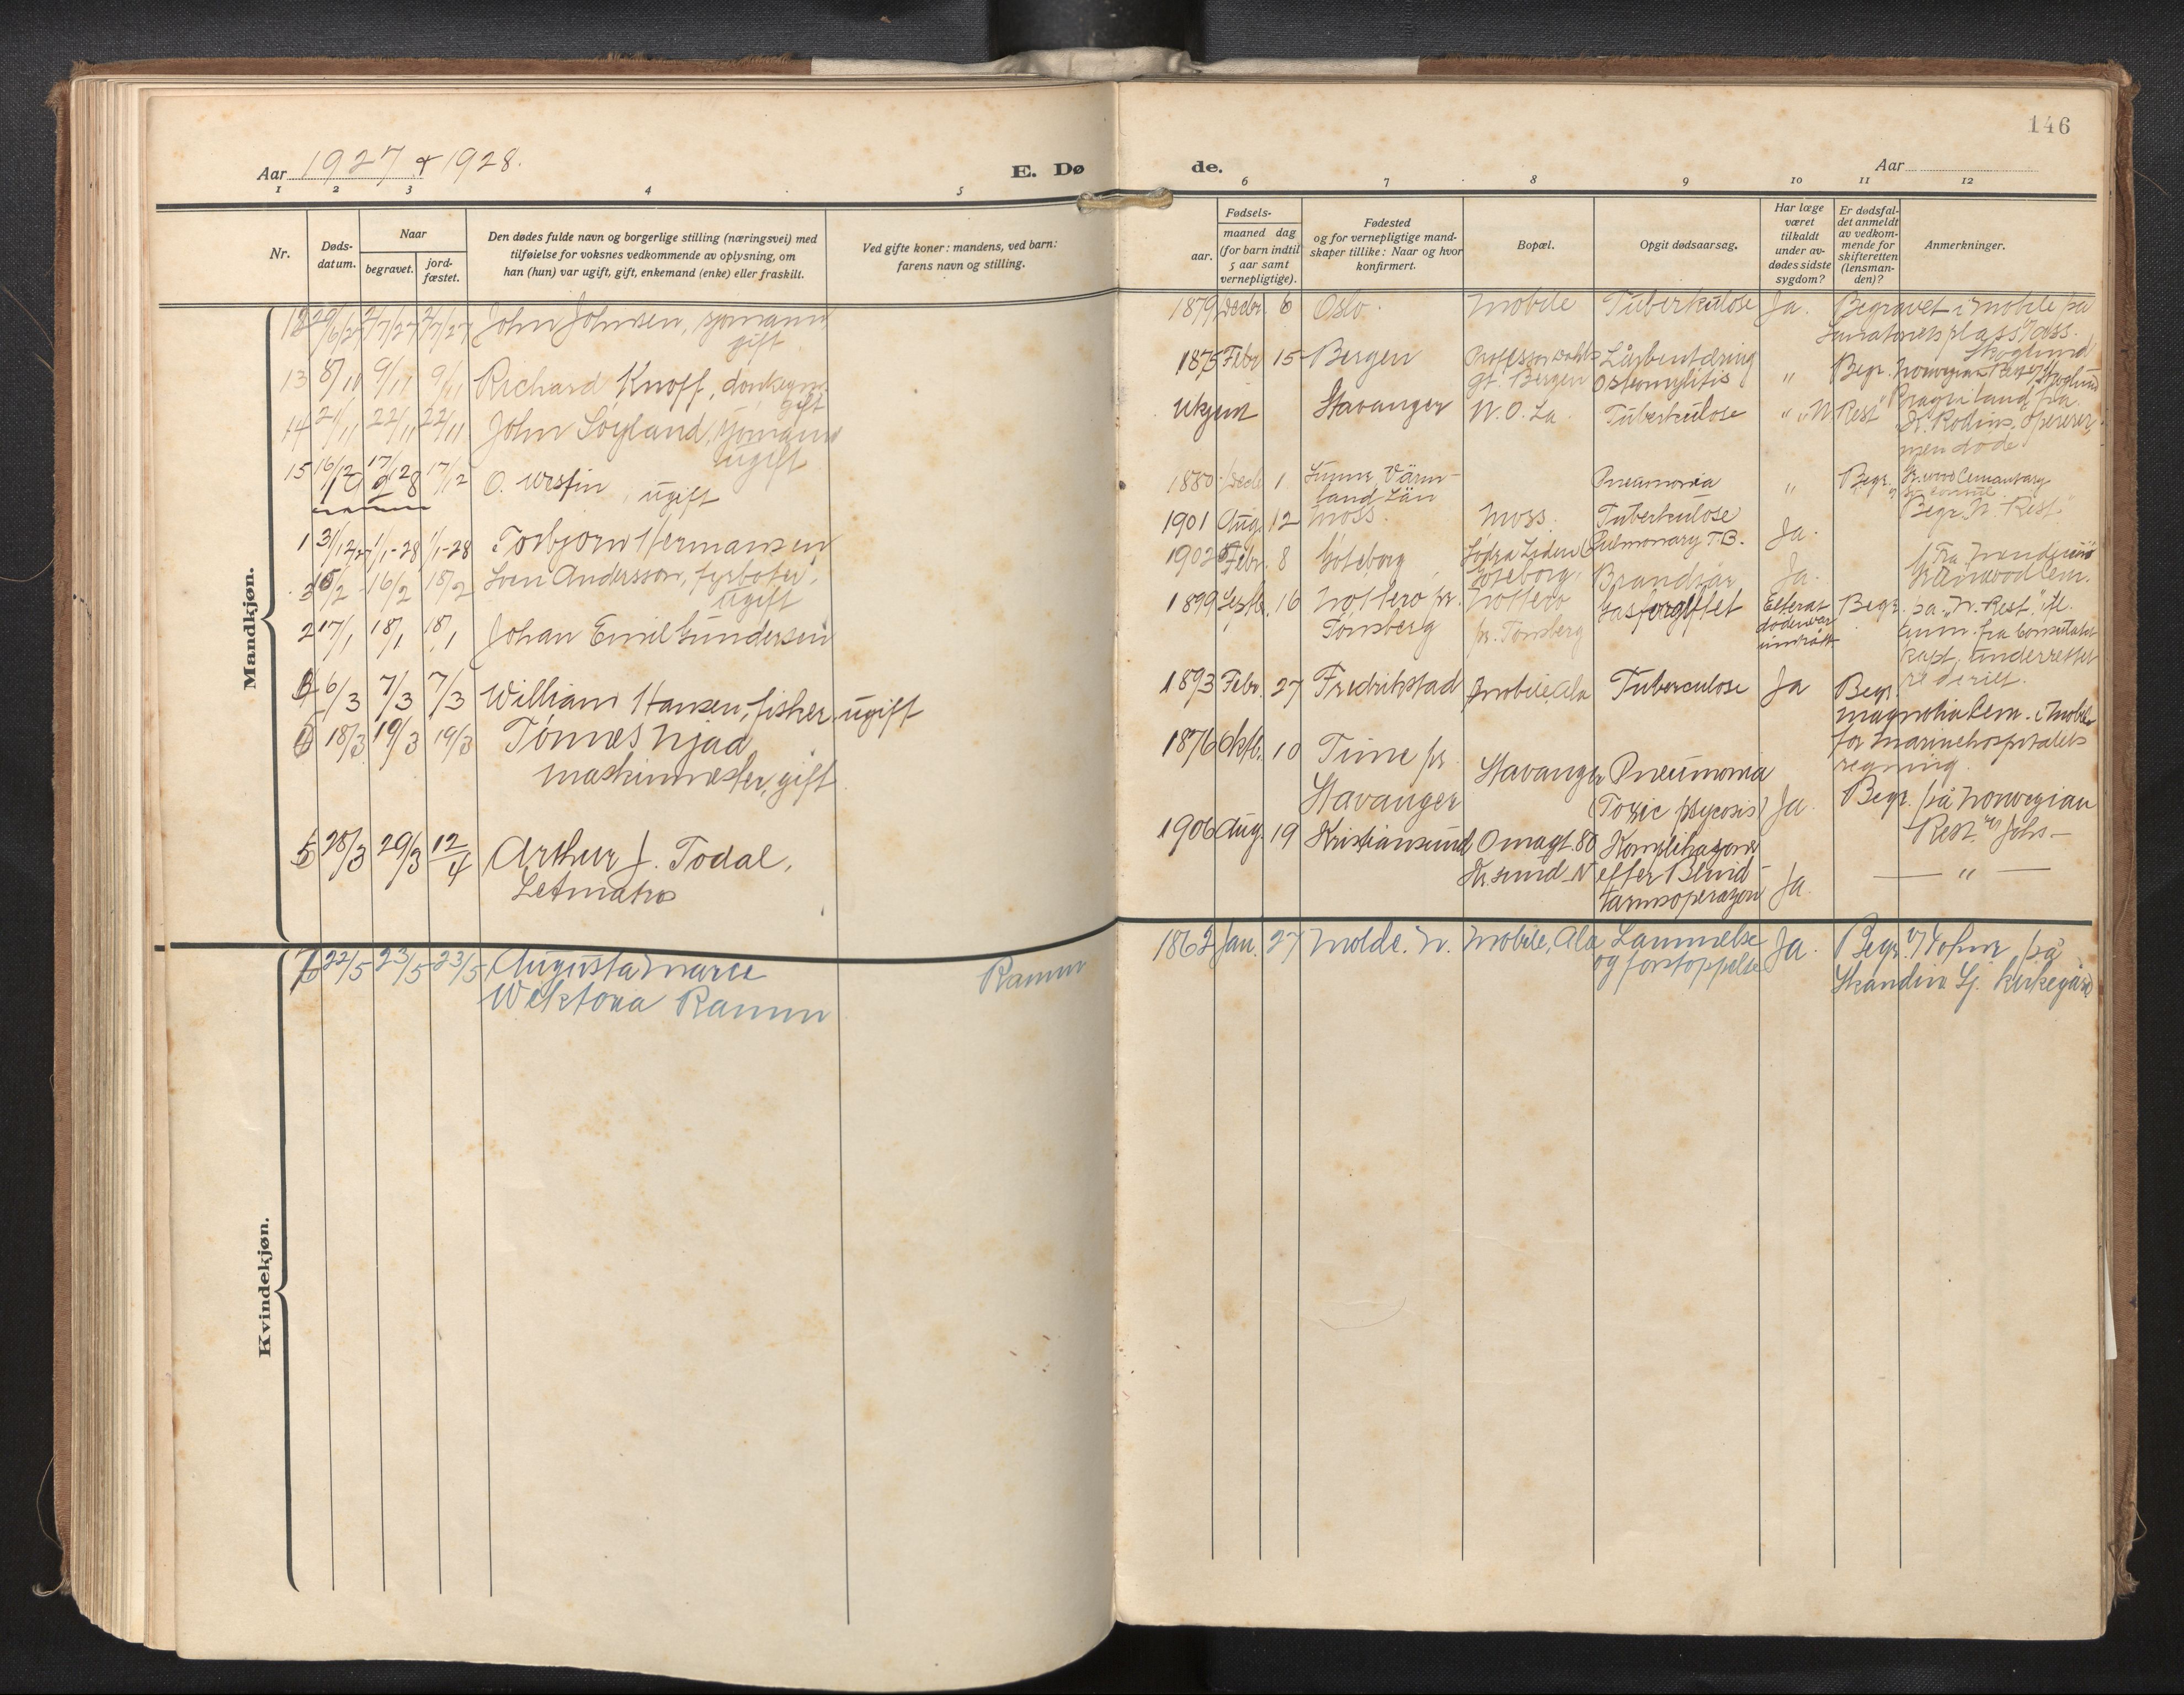 146
Aar 1927 & 1928.
E. Dø
de.
Aar
1 2 3 4 5 6 7 8 9 10 11 12
Nr.
Døds-
datum.
Naar
begravet.
jord-
fæstet.
Den dødes fulde navn og borgerlige stilling (næringsvei) med
tilføielse for voksnes vedkommende av oplysning, om
han (hun) var ugift, gift, enkemand (enke) eller fraskilt.
Ved gifte koner: mandens, ved barn:
farens navn og stilling.
Fødsels-
aar.
maaned dag
(for barn indtil
5 aar samt
vernepligtige).
Fødested
og for vernepligtige mand-
skaper tillike: Naar og hvor
konfirmert.
Bopæl.
Opgit dødsaarsag.
Har læge
været
tilkaldt
under av-
dødes sidste
sygdom?
Er dødsfal-
det anmeldt
av vedkom-
mende for
skifteretten
(lensman-
den)?
Anmerkninger.
Mandkjøn.
12 29/6/27 2/7/27 2/7/27 John Johnsen, sjømann
gift
1879 Decbr. 6 Oslo. Mobile Tuberkulose Ja. Begravet i Mobile på
Sanatoriets plass v/ass.
Skoglund
13 8/11 9/11 9/11 Richard Knoff, donkeym.
gift
1875 Febr 15 Bergen Professor Dahls Lårbentæring
gt. Bergen Osteomylitis " Begr. Norwegian Rest v/Skoglund
14 21/11 22/11 22/11 John Søyland, sjømann
ugift
Ukjent Stavanger N. O. La. Tuberkulose " " N Rest
Dr. Rodins
men døde
15 16/12 17/12 28 17/12 O. Westin, ugift
1880 Decbr 1 Värm-
land Län Pneumonia " Begr.
1 31/12 1/1-28 1/1-28 Torbjørn Hermansen
1901 Aug. 12 Moss. Moss. Tuberkulose Ja. Begr. N. Rest
3 15/2 16/2 15/2 Sven Andersson, fyrbøter,
ugift
1902 Febr. 8 Göteborg Södra Liden Pulmonary T.B.
Göteborg, Brandsår Ja. Greenwood Cem.
2 17/1 18/1 18/1 Johan Emil Gundersen
1899 Septb. 16 Nøtterø pr. Nøtterø Gasforgiftet Efterat Begr. på "N. Rest"
Tønsberg pr. Tønsberg døden var
inntrått
anm. fra Consulatet
kapt. underrettet
rederiet.
4 6/3 7/3 7/3 William Hansen, fisher, ugift
1893 Febr. 27 Fredrikstad Mobile, Ala Tuberculose Ja Begr.
Magnolia Cem. i Mobile
for Marinehospitalets
regning.
18/3 19/3 19/3 Tønnes Njad
maskinmester, gift
1876 Oktb. 10 Time pr.
Stavanger Stavanger Pneumonia
(Toxic psycosis) Ja. Begr. på Norwegian
Rest. v/ Johs –
5 28/3 29/3 12/4 Arthur J. Todal,
Letmatros
1906 Aug. 19 Kristiansund Omagt. 80 Komplikasjoner
Kr.sund. N efter Blind-
tarmsoperasjon Ja. — " —
Kvindekjøn.
22/5 23/5 23/5 Augusta Marie
Wiktoria Ramm
Ramm
1862 Jan. 27 Molde. N. Mobile, Ala Lammelse Ja. Begr. v/ Johns på
og forstoppelse Skandin. Sj. kirkegård